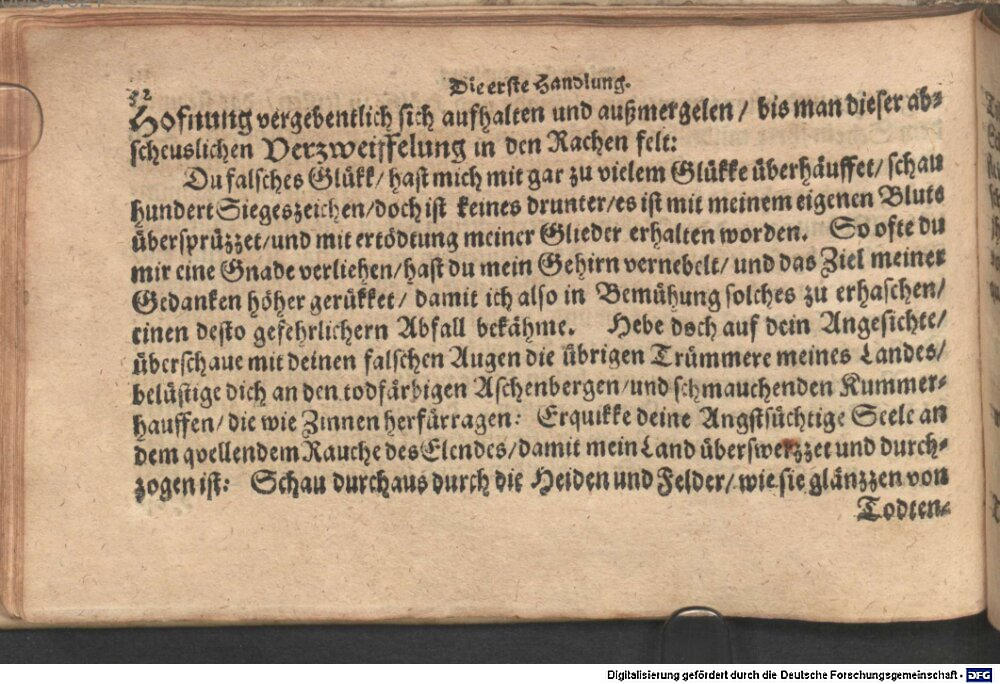 52
Die erste Handlung.
Hofnung vergebentlich sich aufhalten und außmergelen / bis man dieser ab-
scheuslichen Verzweiffelung in den Rachen felt:
Du falsches Glükk / hast mich mit gar zu vielem Glükke überhäuffet / schau
hundert Siegeszeichen / doch ist keines drunter / es ist mit meinem eigenen Blute
übersprüzzet / und mit ertödtung meiner Glieder erhalten worden. So ofte du
mir eine Gnade verliehen / hast du mein Gehirn vernebelt / und das Ziel meiner
Gedanken höher gerükket / damit ich also in Bemühung solches zu erhaschen /
einen desto gefehrlichern Abfall bekähme. Hebe doch auf dein Angesichte /
überschaue mit deinen falschen Augen die übrigen Trümmere meines Landes /
belüstige dich an den todfärbigen Aschenbergen / und schmauchenden Kummer-
hauffen / die wie Zinnen herfürragen: Erquikke deine Angstsüchtige Seele an
dem quellendem Rauche des Elendes / damit mein Land überswerzzet und durch-
zogen ist: Schau durchaus durch die Heiden und Felder / wie sie glänzzen von
Todten-
Digitalisierung gefördert durch die Deutsche Forschungsgemeinschaft - DFG